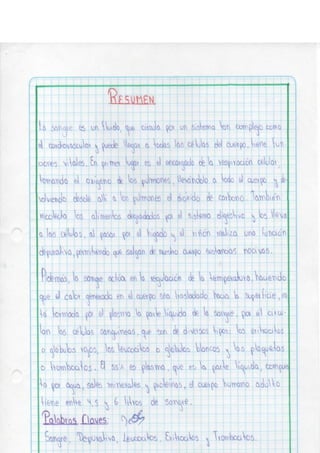 RESUMEN
La sangre es un fluido, que circula por un sistema tan complejo como
el cardiovascular y puede llegar a todas las células del cuerpo, tiene fun
ciones vitales. En primer lugar es el encargado de la respiración celular
tomando el oxígeno de los pulmones, llevándolo a todo el cuerpo y de-
volviendo desde allí a los pulmones el dióxido de carbono. También
recolecta los alimentos degradados por el sistema digestivo y los lleva
a las células, al pasar por el hígado y el riñón realiza una función
depurativa, permitiendo que salgan de nuestro cuerpo sustancias nocivas.
Además, la sangre actúa en la regulación de la temperatura, haciendo
que el calor generado en el cuerpo sea trasladado hacia la superficie,
la formada por el plasma la parte líquida de la sangre, por él circu-
lan las células sanguíneas, que son de diversos tipos: los eritrocitos
o glóbulos rojos, los leucocitos o glóbulos blancos y las plaquetas
o trombocitos. El 55% es plasma, que es la parte líquida, compues
ta por agua, sales minerales y proteínas, el cuerpo humano adulto
tiene entre 4,5 y 6 litros de sangre.
Palabras Claves:
Sangre, Depurativa, Leucocitos, Eritrocitos y Trombocitos.